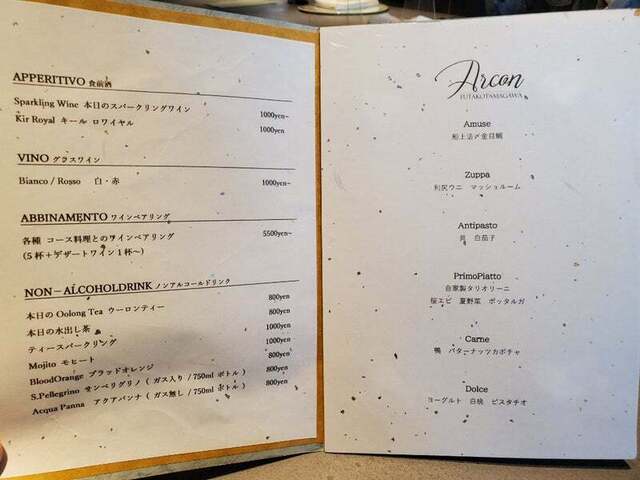 APPERITIVO 食前酒
Sparkling Wine 本日のスパークリングワイン 1000yen~
Kir Royal キール ロワイヤル 1000yen
VINO グラスワイン
Bianco / Rosso 白・赤 1000yen~
ABBINAMENTO ワインペアリング
各種 コース料理とのワインペアリング 5500yen~
(5杯+デザートワイン1杯~)
NON-ALCOHOLDRINK ノンアルコールドリンク
本日の Oolong Tea ウーロンティー 800yen
本日の水出し茶 800yen
ティースパークリング 1000yen
Mojito モヒート 1000yen
BloodOrange ブラッドオレンジ 800yen
S.Pellegrino サンペリグリノ ( ガス入り / 750ml ボトル ) 800yen
Acqua Panna アクアパンナ ( ガス無し / 750ml ボトル ) 800yen
Arcon
FUTAKOTAMAGAWA
Amuse
船上活〆金目鯛
Zuppa
利尻ウニ マッシュルーム
Antipasto
白茄子
PrimoPiatto
自家製タリオリーニ
桜エビ 夏野菜 ボッタルガ
Carne
鴨 バターナッツカボチャ
Dolce
ヨーグルト 白桃 ピスタチオ